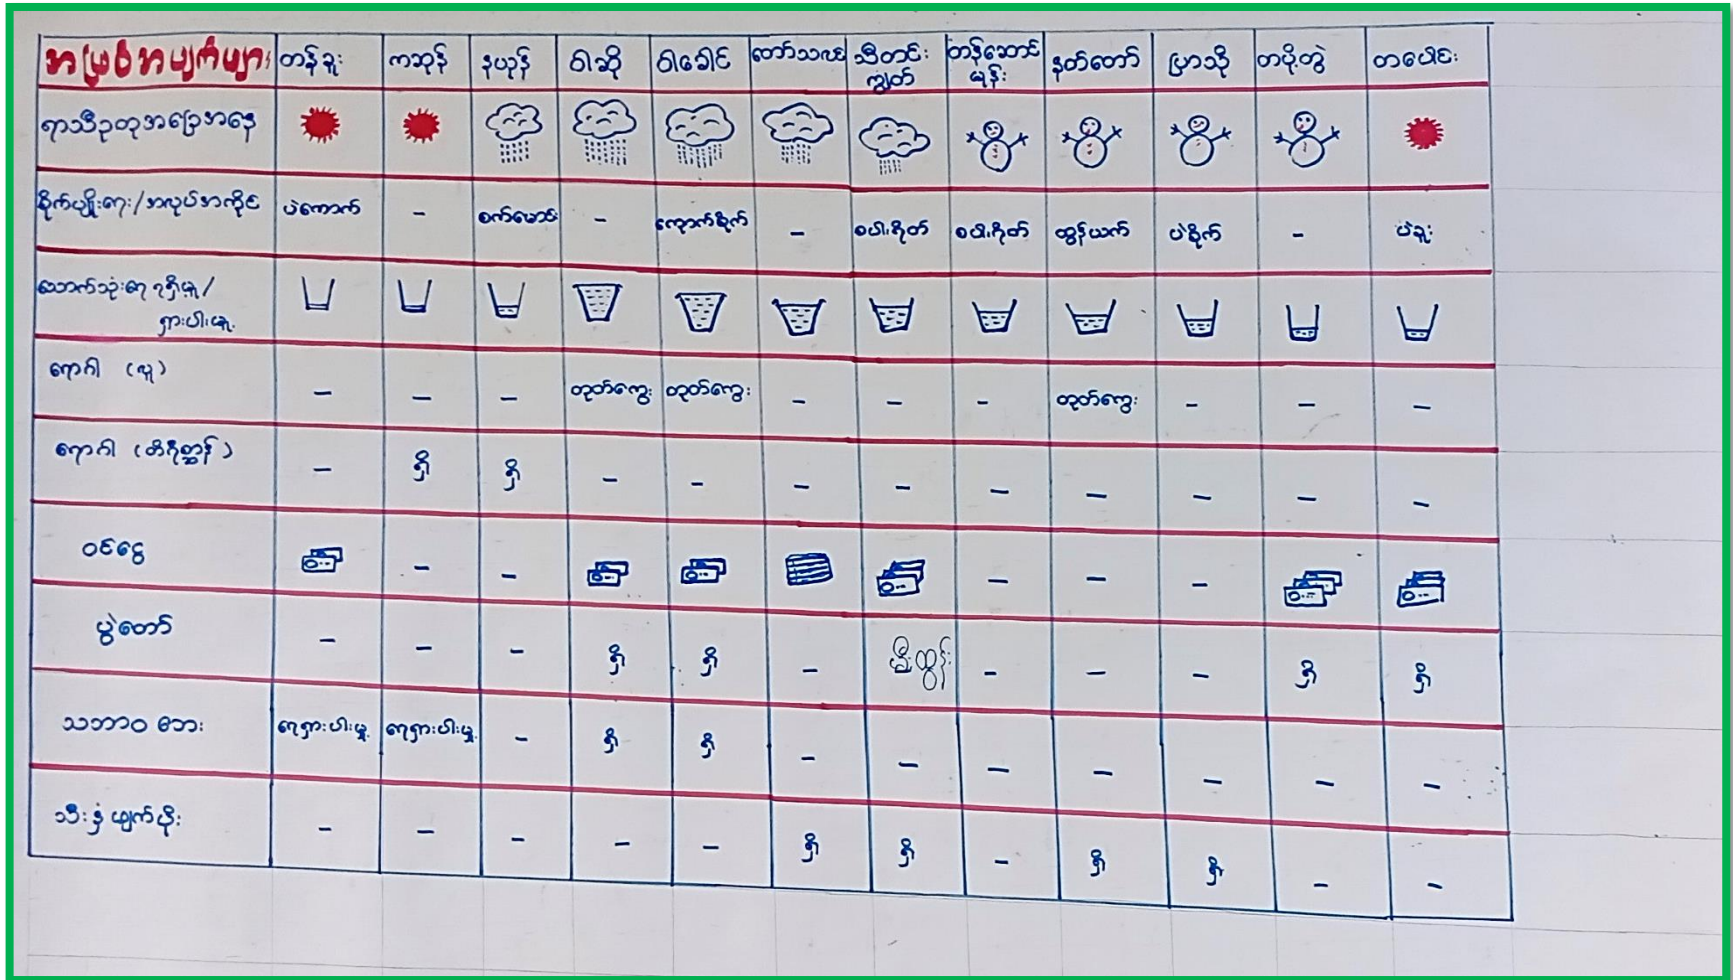 အဖြစ်အပျက်များ တန်ခူး ကဆုန် နယုန် ဝါဆို ဝါခေါင် တော်သလင်း သီတင်းကျွတ် တန်ဆောင်မုန်း နတ်တော် ပြာသို တပို့တွဲ တပေါင်း
ရာသီဥတုအခြေအနေ
စိုက်ပျိုးရေး/အလုပ်အကိုင် ပဲကောက် - စက်မောင်း - ကောက်စိုက် - စပါးရိတ် စပါးရိတ် ထွန်ယက် ပဲစိုက် - ပဲနူး
သောက်သုံးရေ ရရှိမှု/
ရှားပါးမှု
ရောဂါ (လူ) - - - တုတ်ကွေး တုတ်ကွေး - - - တုတ်ကွေး - - -
ရောဂါ (တိရိစ္ဆာန်) - ရှိ ရှိ - - - - - - - - -
ဝင်ငွေ - - - - - -
ပွဲတော် - - - ရှိ ရှိ - မီးထွန်း - - - ရှိ ရှိ
သဘာဝ ဘေး ရေရှားပါးမှု ရေရှားပါးမှု - ရှိ ရှိ - - - - - - -
သီးနှံ ဖျက်ပိုး - - - - - ရှိ ရှိ - ရှိ ရှိ - -